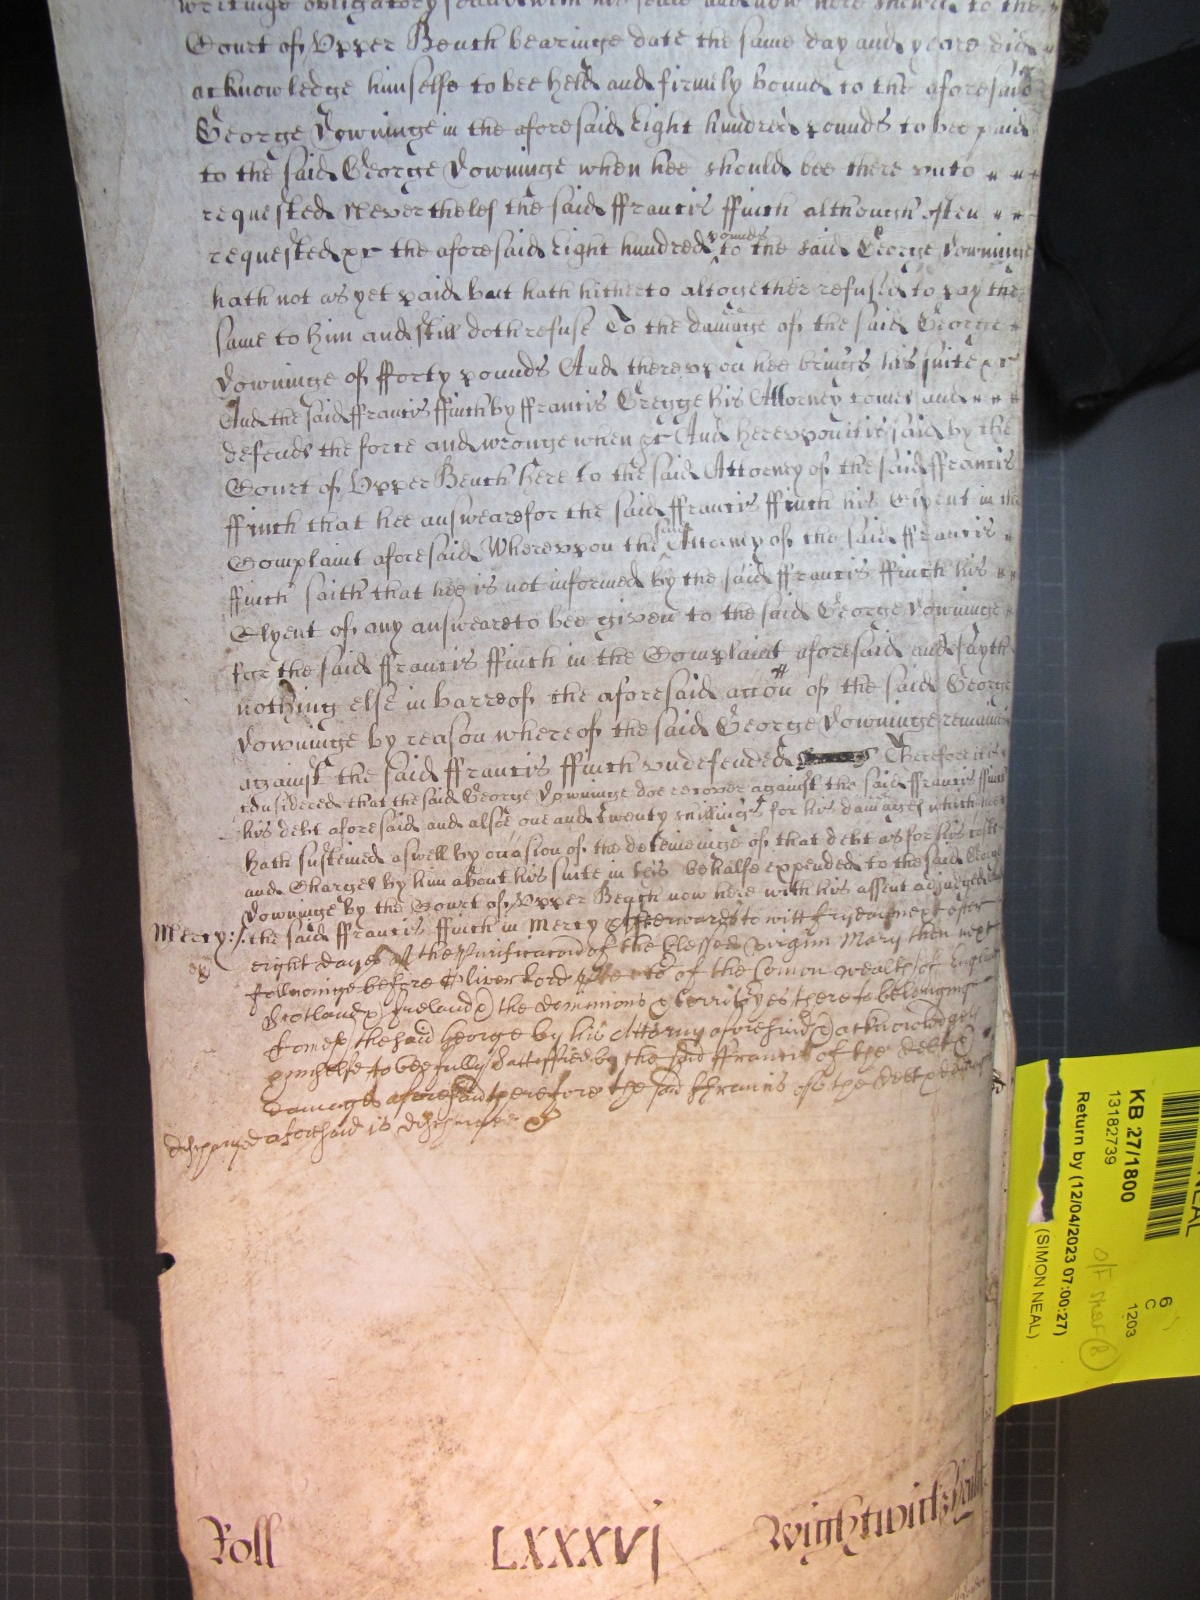 writinge obligatory seald with his seale and now here shewed to the
Court of Upper Bench bearinge date the same day and yeare did
acknowledge himselfe to bee held and firmely bound to the aforesaid
George Downinge in the aforesaid Eight hundred pounds to bee paid
to the said George Downinge when hee should bee there unto
requested Neverthelesse the said ffrancis ffinch although often
requested &c the aforesaid Eight hundred pounds to the said George Downinge
hath not as yet paid but hath hitherto altogether refused to pay the
same to him and still doth refuse To the damage of the said George
Downinge of fforty pounds And thereupon hee brings his suite &c
And the said ffrancis ffinch by ffrancis Gregge his Attorney comes and
defends the force and wronge when &c And hereupon it is said by the
Court of Upper Bench here to the said Attorney of the said ffrancis
ffinch that hee answeare for the said ffrancis ffinch his Clyent in the
Complaint aforesaid Whereupon the said Attorney of the said ffrancis
ffinch saith that hee is not informed by the said ffrancis ffinch his
Clyent of any answeare to bee given to the said George Downinge
for the said ffrancis ffinch in the Complaint aforesaid and sayth
nothing else in barre of the aforesaid accon of the said George
Downinge by reason whereof the said George Downinge remaines
against the said ffrancis ffinch undefended Therefore it is
considered that the said George Downinge doe recover against the said ffrancis ffinch
his debt aforesaid and alsoe one and twenty shillings for his damages which hee
hath susteined aswell by occasion of the deteineinge of that debt as for his costs
and Charges by him about his suite in this behalfe expended to the said George
Downinge by the Court of Upper Bench now here with his assent adjudged And
Mercy: the said ffrancis ffinch in Mercy &c Afterwards to witt fryday next after
eight dayes of the Purificacion of the blessed virgin Mary then next
followinge before Oliver Lord Protector of the Comon wealth of England
Scotland & Ireland & the dominions & territoryes thereto belonging
Comes the said George by his Attorny aforesaid & acknowledgeth
himselfe to bee fully sattisfied by the said ffrancis of the debt &
damages aforesaid therefore the said ffrancis of the debt &
damages aforesaid is discharged &c
Roll LXXXVI Wightwick
KB 27/1800
13182739
Return by (12/04/2023 07:00:27)
(SIMON NEAL)
NEAL
6
C
1203